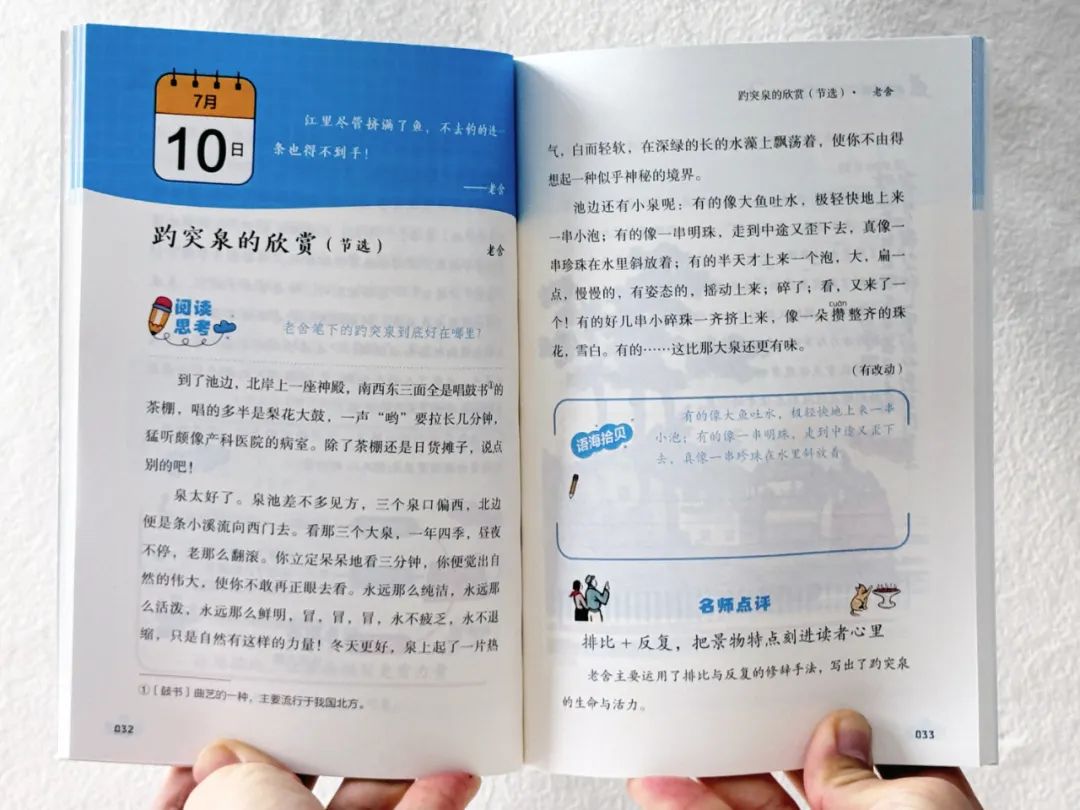 7月
10日
江里尽管挤满了鱼，不去钓的连一
条也得不到手！
——老舍
趵突泉的欣赏（节选）
老舍
阅读
思考
老舍笔下的趵突泉到底好在哪里？
到了池边，北岸上一座神殿，南西东三面全是唱鼓书①的
茶棚，唱的多半是梨花大鼓，一声“哟”要拉长几分钟，
猛听颇像产科医院的病室。除了茶棚还是日货摊子，说点
别的吧！
泉太好了。泉池差不多见方，三个泉口偏西，北边
便是条小溪流向西门去。看那三个大泉，一年四季，昼夜
不停，老那么翻滚。你立定呆呆地看三分钟，你便觉出自
然的伟大，使你不敢再正眼去看。永远那么纯洁，永远那
么活泼，永远那么鲜明，冒，冒，冒，永不疲乏，永不退
缩，只是自然有这样的力量！冬天更好，泉上起了一片热
①［鼓书］曲艺的一种，主要流行于我国北方。
032
趵突泉的欣赏（节选）· 老舍
气，白而轻软，在深绿的长的水藻上飘荡着，使你不由得
想起一种似乎神秘的境界。
池边还有小泉呢：有的像大鱼吐水，极轻快地上来
一串小泡；有的像一串明珠，走到中途又歪下去，真像一
串珍珠在水里斜放着；有的半天才上来一个泡，大，扁一
点，慢慢的，有姿态的，摇动上来；碎了；看，又来了一
cuán
个！有的好几串小碎珠一齐挤上来，像一朵攒整齐的珠
花，雪白。有的……这比那大泉还更有味。
（有改动）
语海拾贝
有的像大鱼吐水，极轻快地上来一串
小泡；有的像一串明珠，走到中途又歪下
去，真像一串珍珠在水里斜放着
名师点评
排比＋反复，把景物特点刻进读者心里
老舍主要运用了排比与反复的修辞手法，写出了趵突泉
的生命与活力。
033